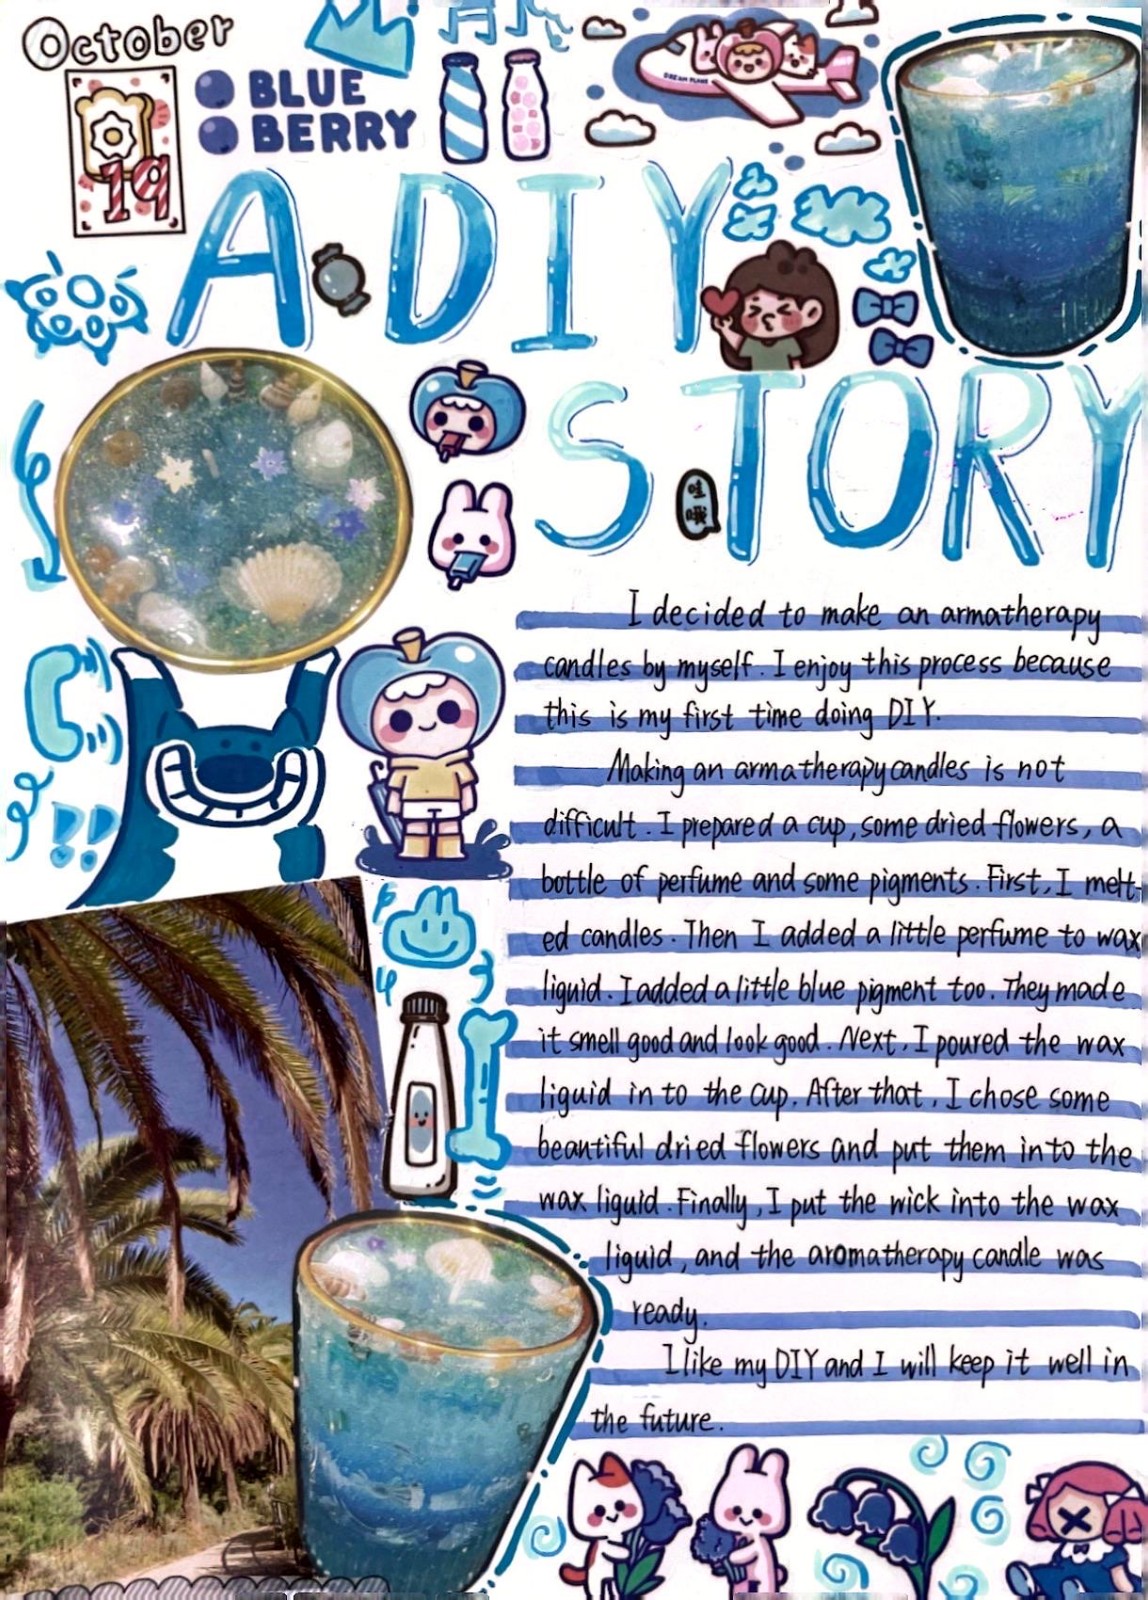 October
19
BLUE
BERRY
DREAM PLANE
A DIY
STORY
哇
哦
I decided to make an armatherapy
candles by myself. I enjoy this process because
this is my first time doing DIY.
Making an armatherapy candles is not
difficult. I prepared a cup, some dried flowers, a
bottle of perfume and some pigments. First, I melt-
ed candles. Then I added a little perfume to wax
liguid. I added a little blue pigment too. They made
it smell good and look good. Next, I poured the wax
liguid in to the cup. After that, I chose some
beautiful dried flowers and put them into the
wax liguid. Finally, I put the wick into the wax
liguid, and the aromatherapy candle was
ready.
I like my DIY and I will keep it well in
the future.